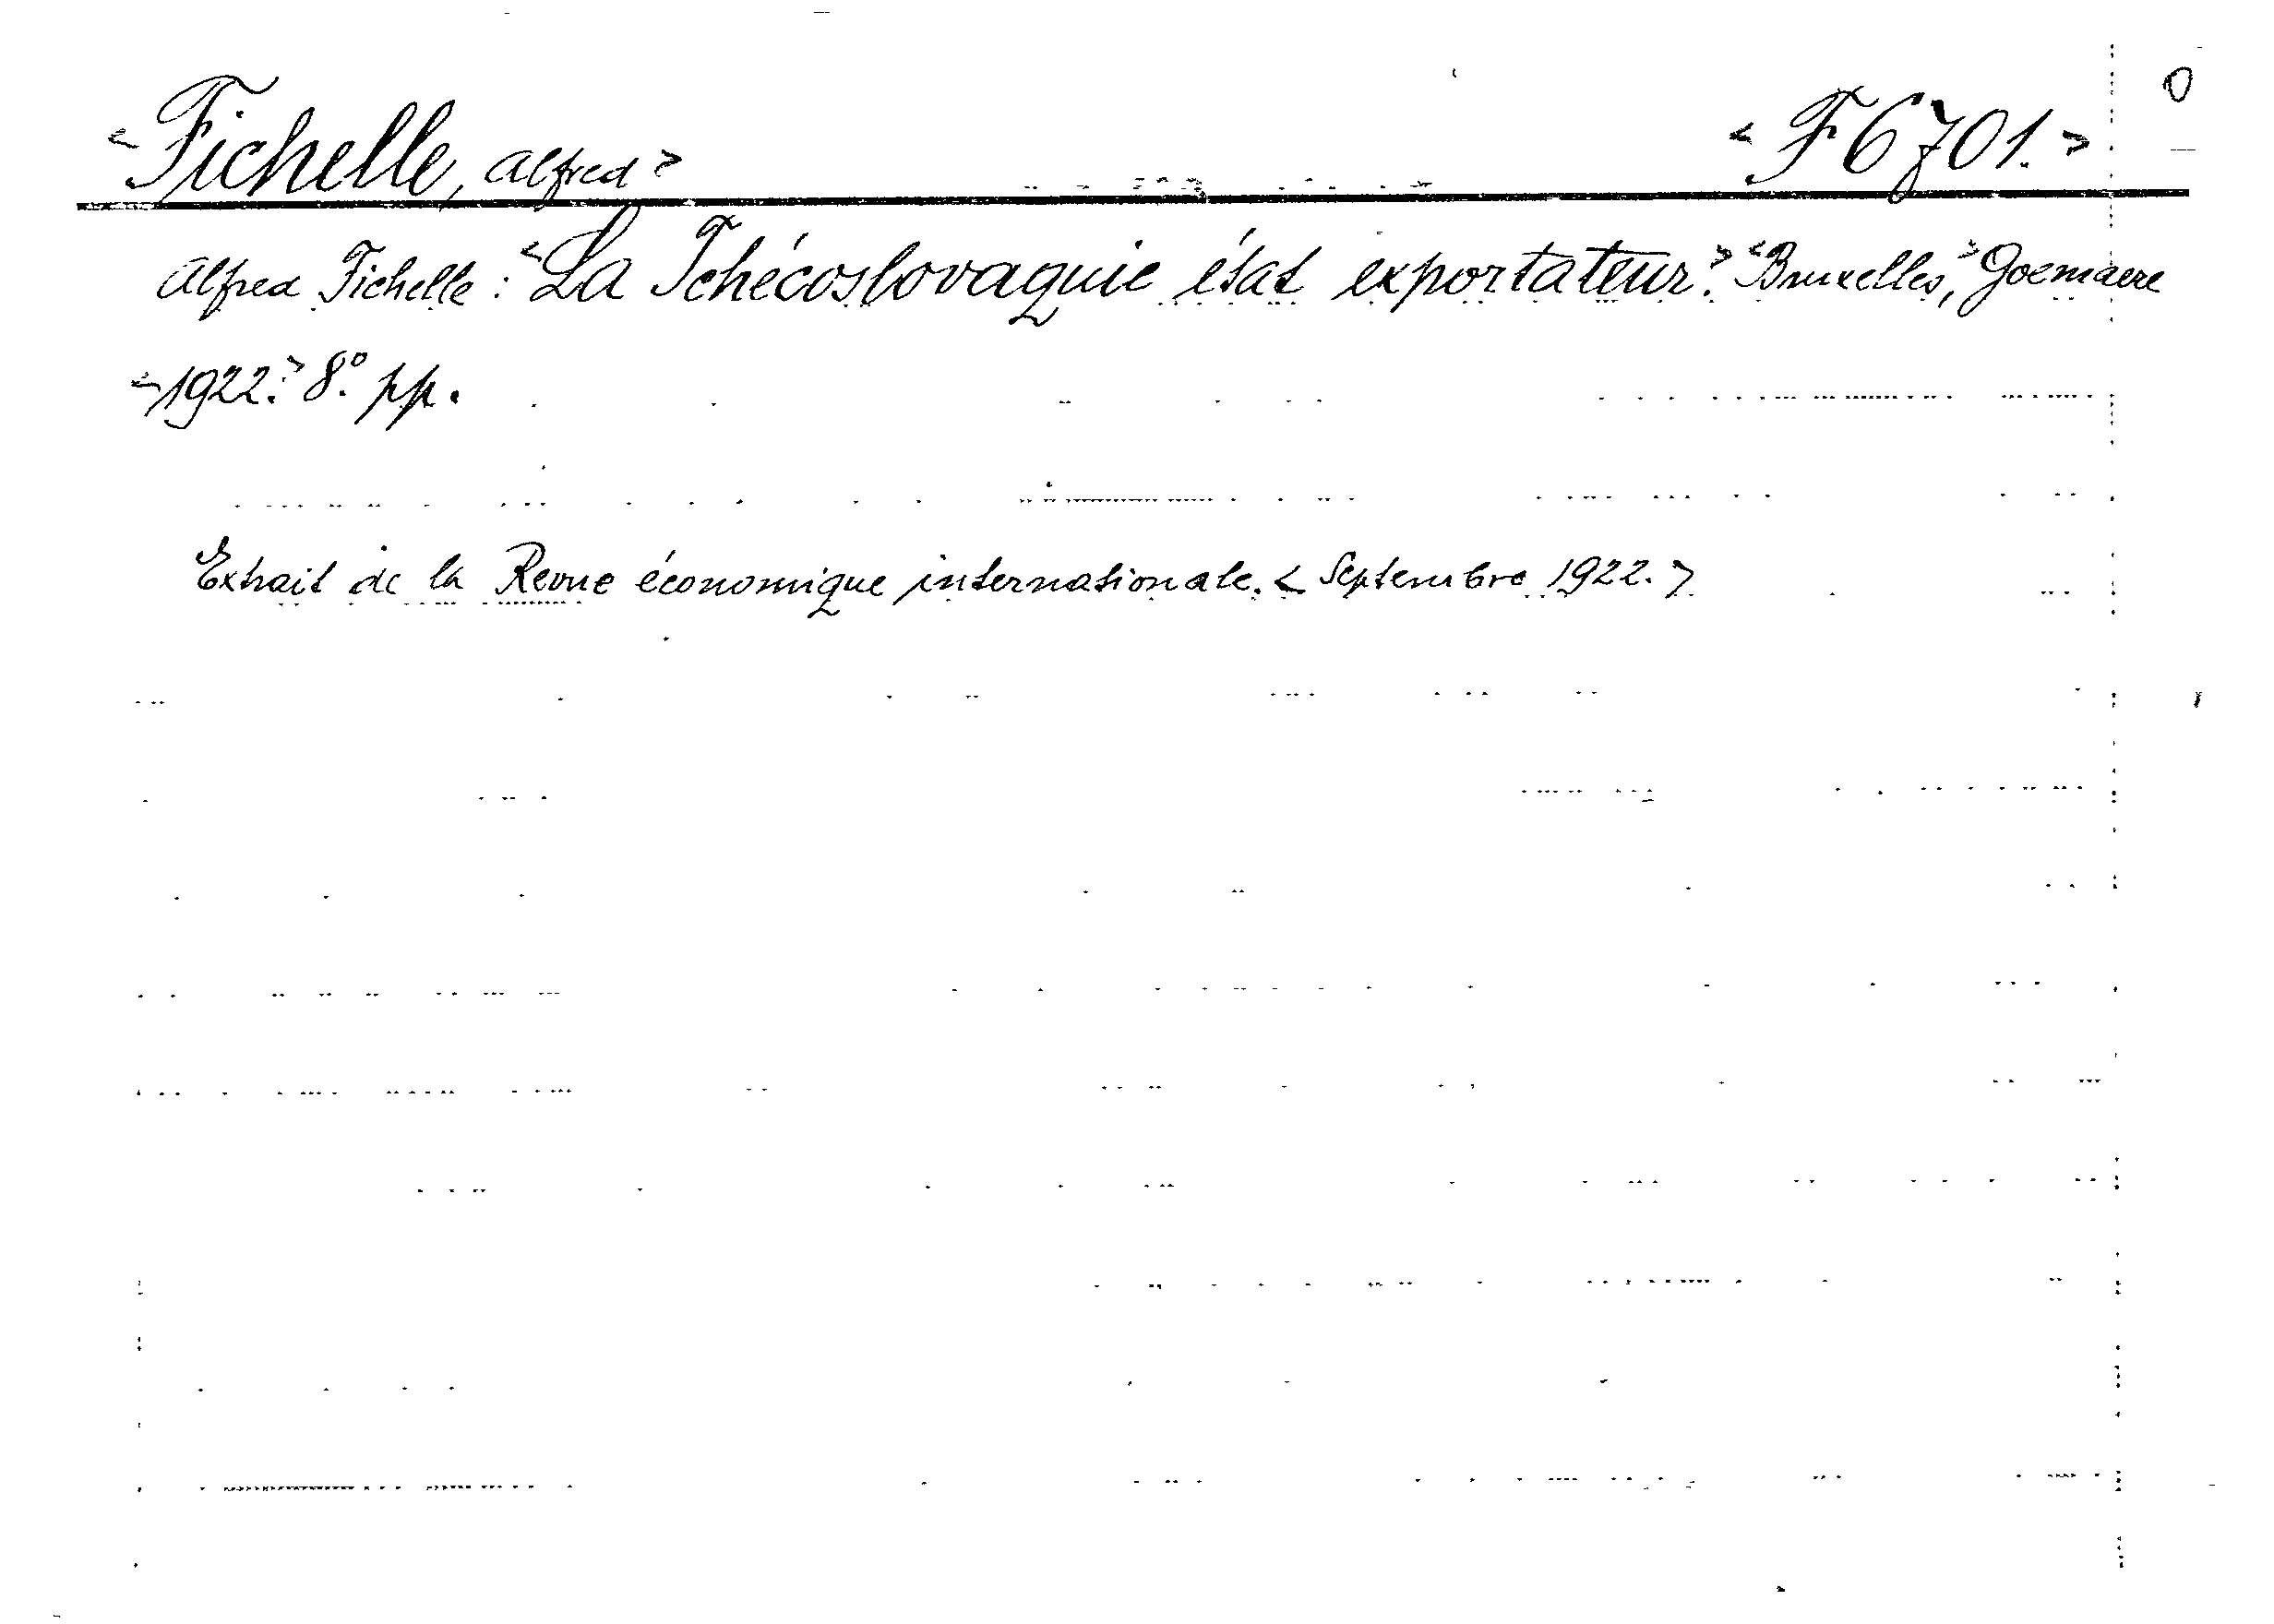 <Fichelle, Alfred> <F 6701.> 0
Alfred Fichelle: <La Tchécoslovaquie état exportateur.> <Bruxelles,> Goemaere
<1922.> 8°. pp.
Extrait de la Revue économique internationale. <Septembre 1922.>